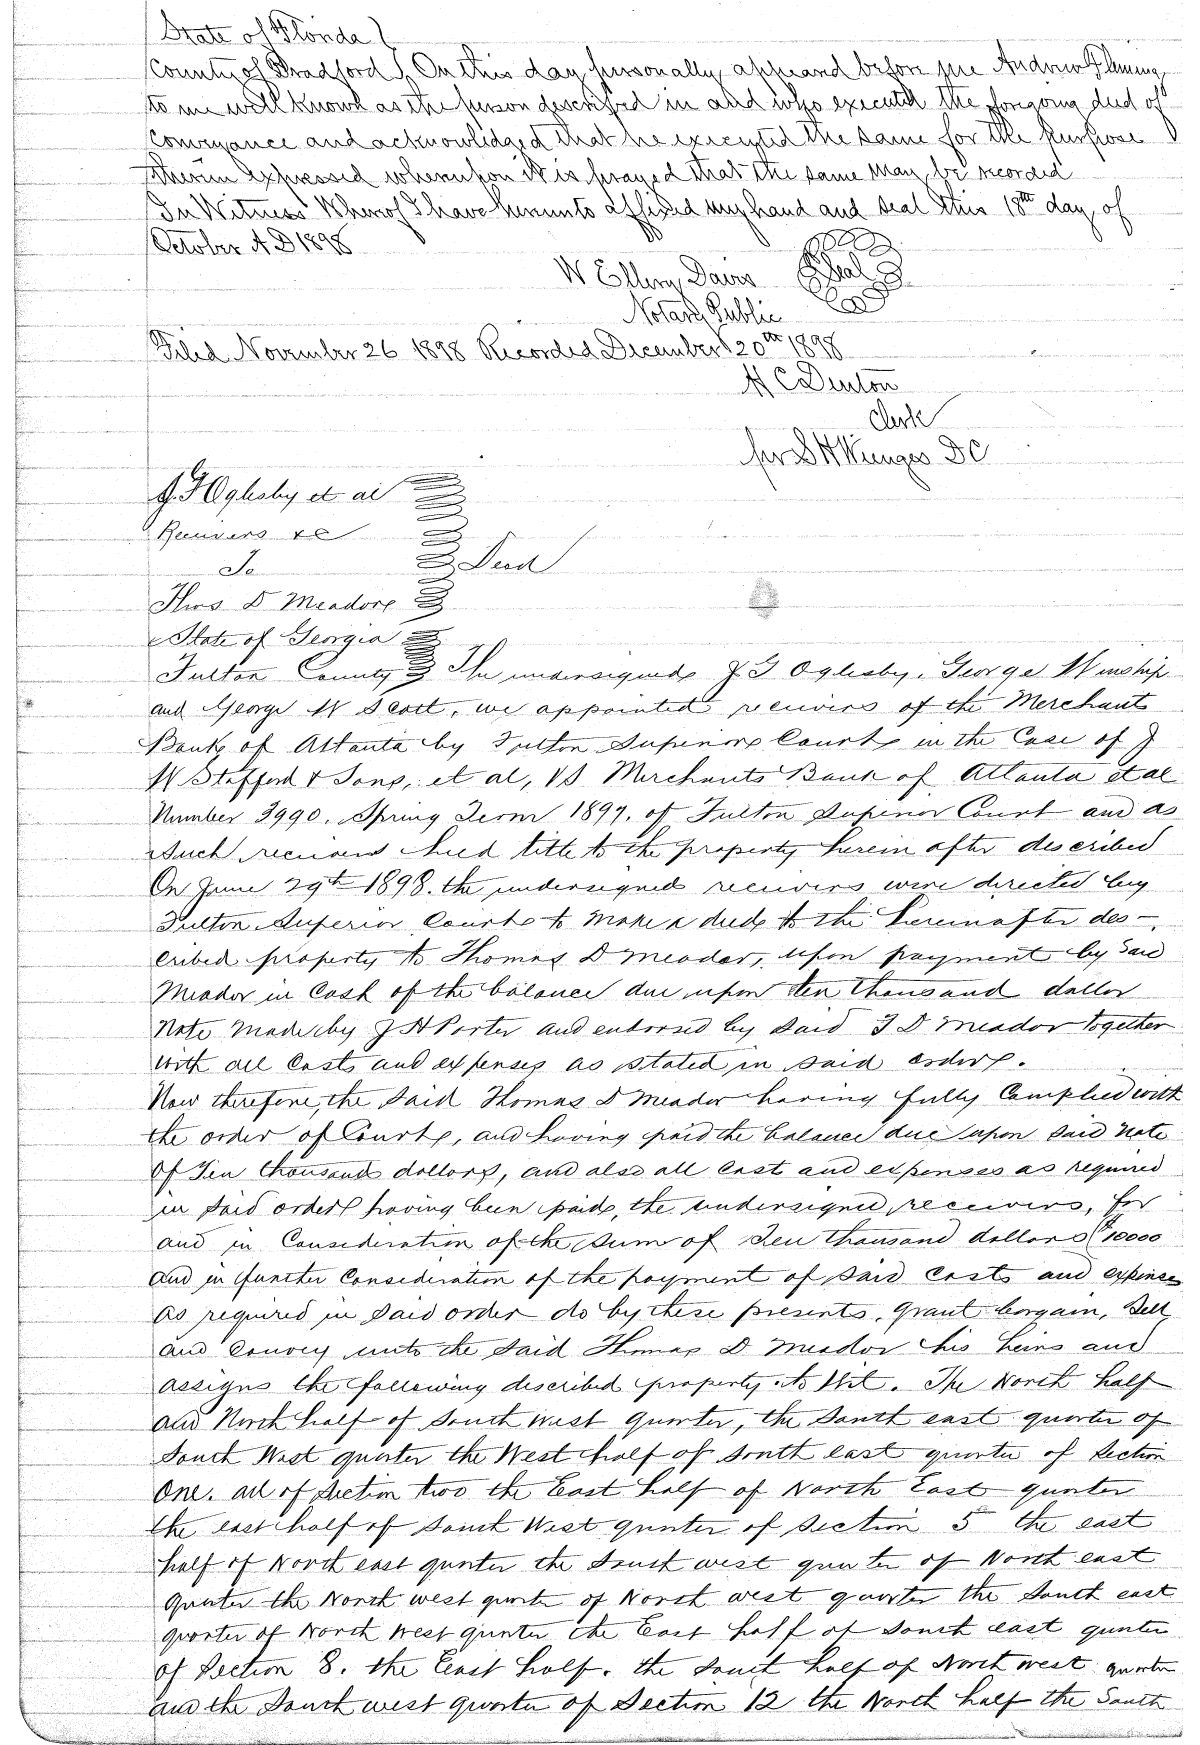 State of Florida
County of Bradford On this day personally appeared before me Andrew Fleming
to me well known as the person described in and who executed the forgoing deed of
Conveyance and acknowledged that he executed the same for the purpose
therein expressed whereupon it is prayed that the same may be recorded
In Witness Whereof I have hereunto affixed my hand and seal this 18th day of
October A D 1898
W Ellery Davis Seal
Notary Public
Filed November 26 1898 Recorded December 20th 1898
H C Denton
Clerk
per D C
J. G Oglesby et al
Receivers &c
To Deed
Thos D Meador
State of Georgia
Fulton County The undersigned J G Oglesby, George Winship
and George W Scott, we appointed receivers of the Merchants
Bank of Atlanta by Fulton Superior Court in the Case of J
W Stafford & Sons, et al, VS Merchants Bank of Atlanta et al
Number 3990. Spring Term 1897. of Fulton Superior Court and as
Such receivers hied title to the property herein after described
On June 29th 1898. the undersigned receivers were directed by
Fulton Superior Court to make a deed to the hereinafter des-
cribed property to Thomas D Meador, upon payment by said
Meador in Cash of the balance due upon ten thousand dollar
Note made by J H Porter and endorsed by said T D Meador together
with all Costs and expenses as stated in said order.
Now therefore, the Said Thomas D Meador having fully Complied with
the order of Court, and having paid the balance due upon said note
of Ten thousand dollars, and also all cost and expenses as required
in said order having been paid, the undersigned receivers, for
and in Consideration of the sum of Ten thousand dollars ($10000
and in further Consideration of the payment of said Costs and expenses
as required in said order do by these presents, grant bargain, Sell
and Convey unto the said Thomas D. Meador his heirs and
assigns the following described property. to Wit. The North half
and North half of South West quarter, the South east quarter of
South West quarter the West half of South east quarter of Section
One. all of Section two the East half of North East quarter
the east half of South West quarter of Section 5 the east
half of North east quarter the South west quarter of North east
quarter the North west quarter of North west quarter the South east
quarter of North West quarter the East half of South east quarter
of Section 8. the East half. the South half of North west quarter
and the South west quarter of Section 12 the North half the South